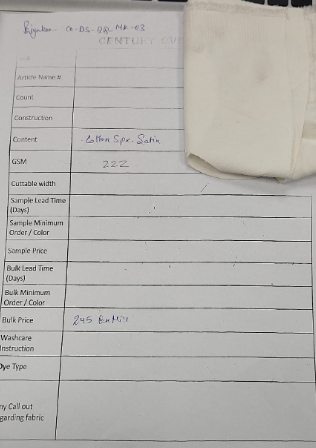 CENTURY
Article Name #
Count
Construction
Content Cotton Spx. Satin
GSM 222
Cuttable width
Sample Lead Time
(Days)
Sample Minimum
Order / Color
Sample Price
Bulk Lead Time
(Days)
Bulk Minimum
Order / Color
Bulk Price 245
Washcare
Instruction
Dye Type
ny Call out
garding fabric